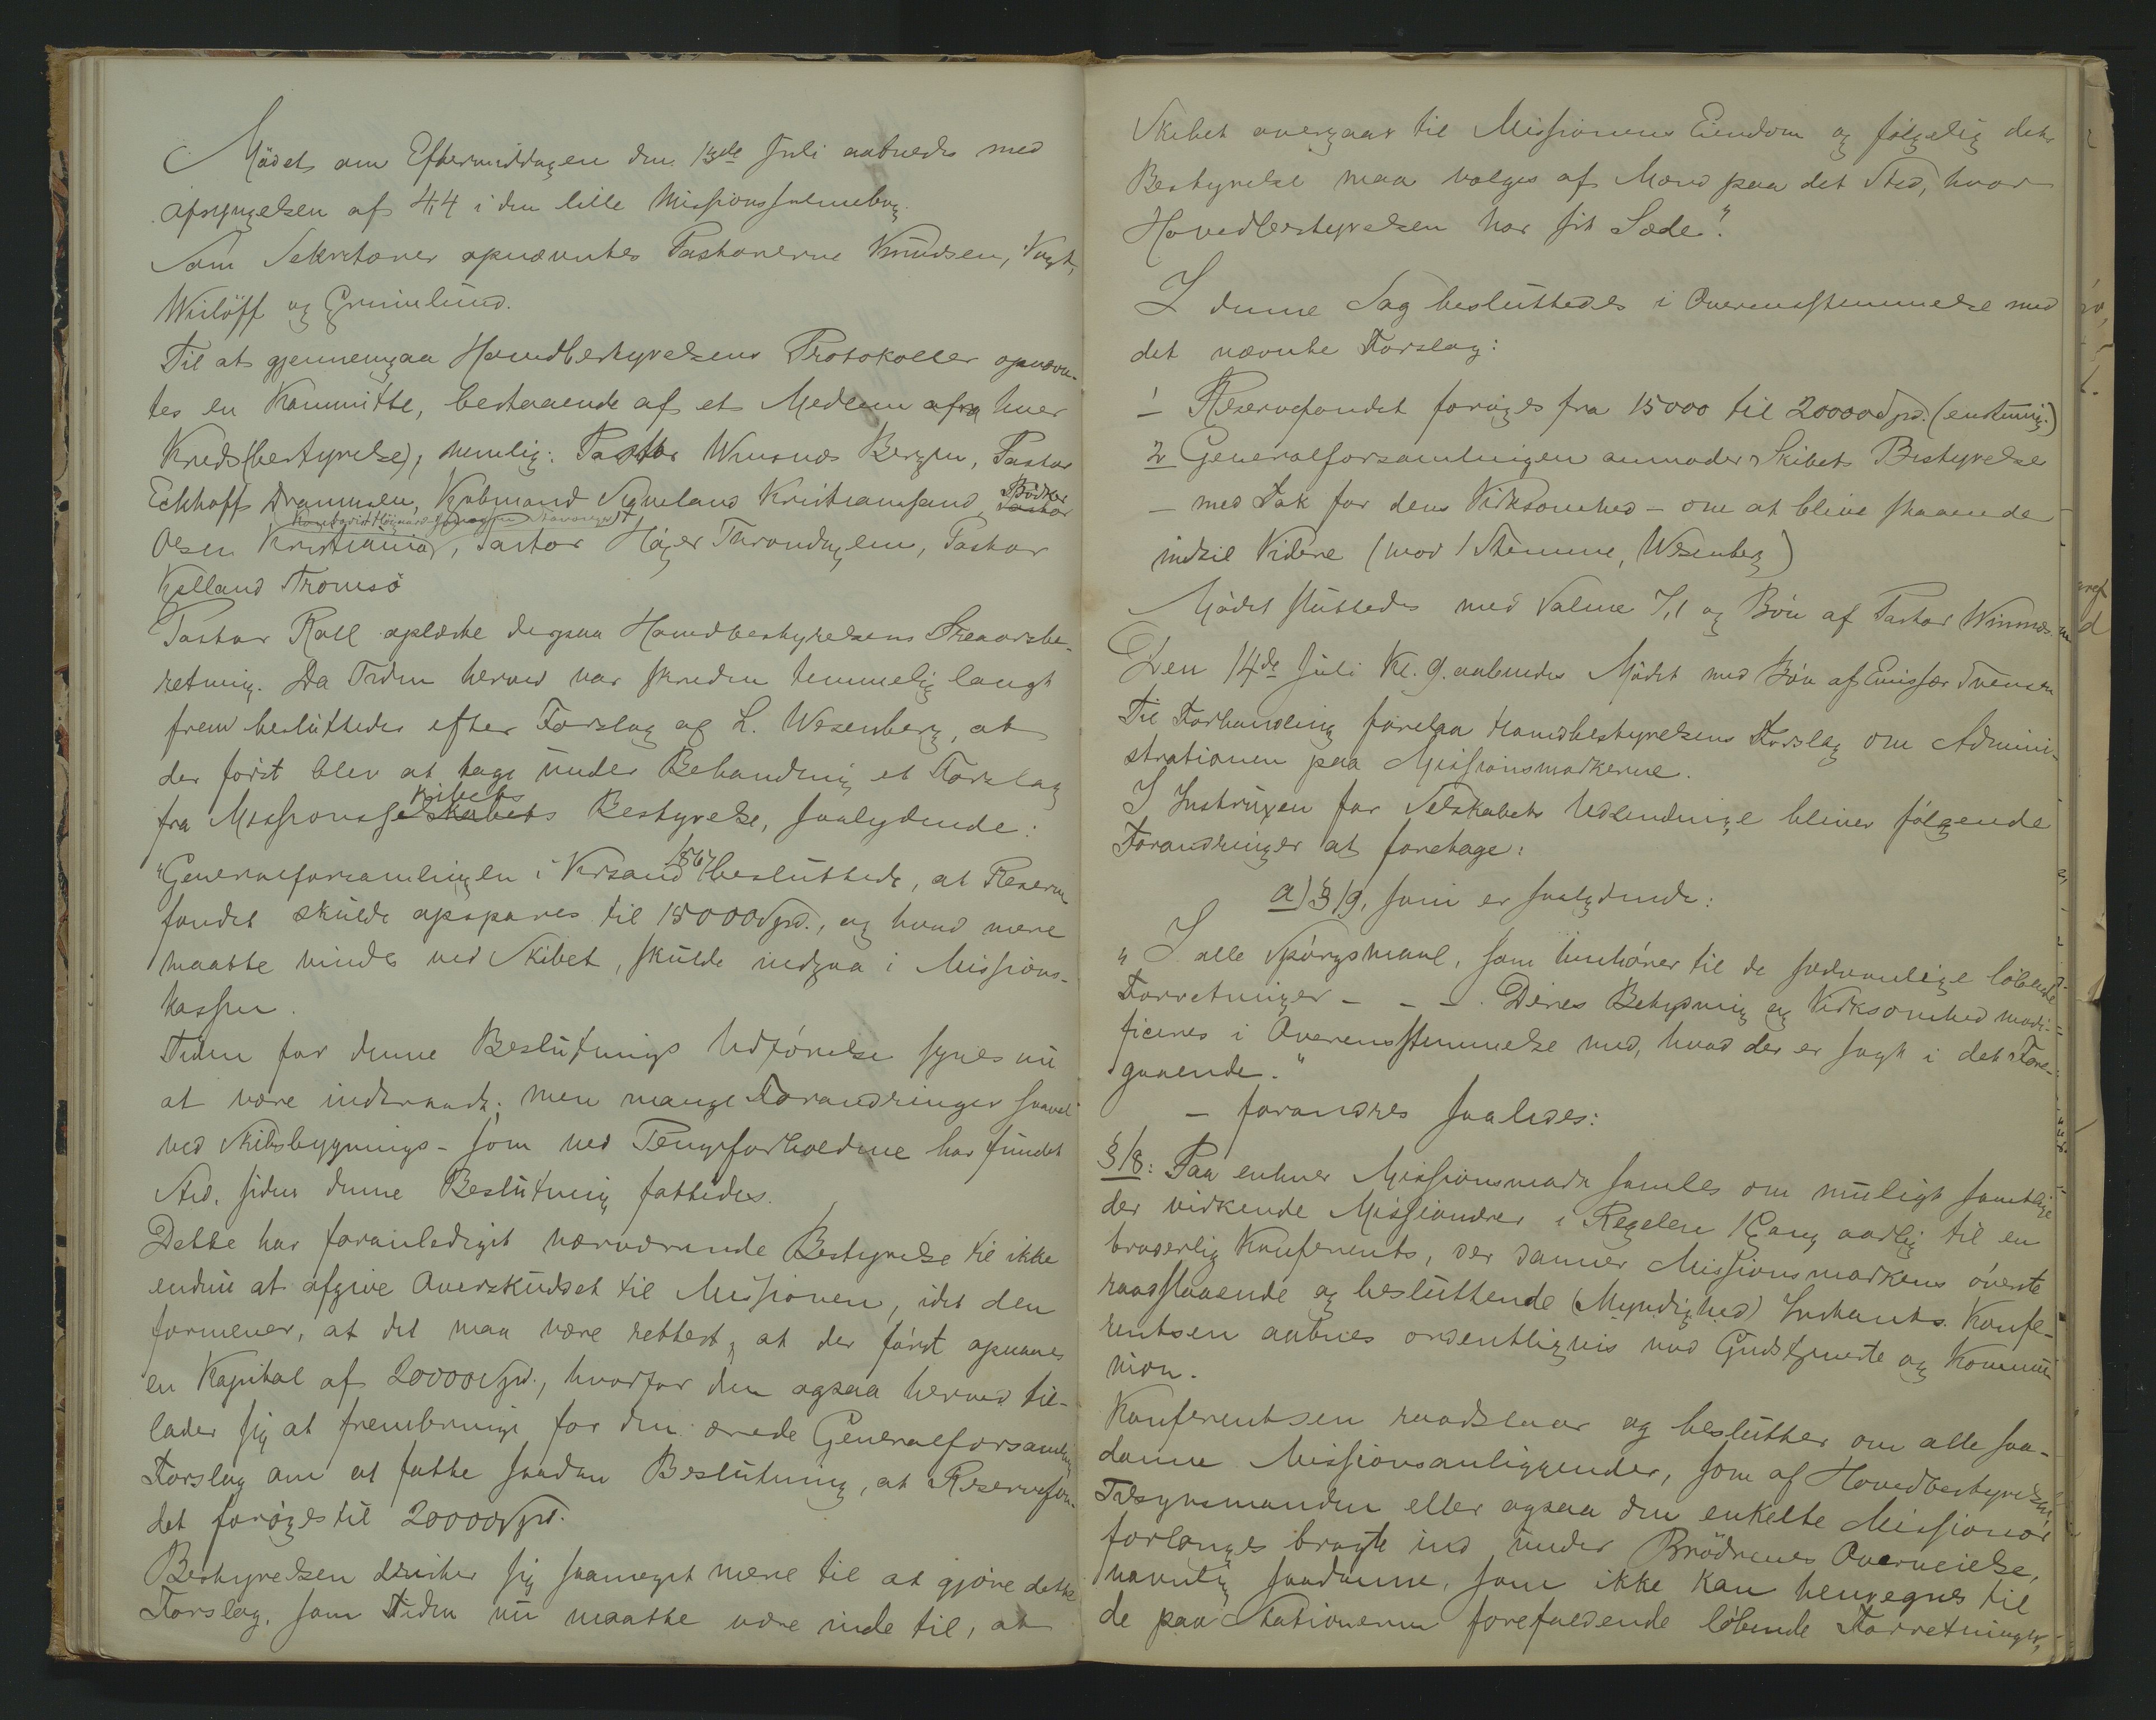 Mödet om Eftermiddagen den 13de Juli aabnedes med
Afsyngelsen af 44 i den lille Missionssalmebog.
Som Sekretærer opnævntes Pastorerne Knudsen, Vogt,
Wisløff og Grimelund.
Til at gjennemgaa Hovedbestyrelsens Protokoller opnævn-
tes en Kommitte, bestaaende af et Medlem fra hver
Kreds(bestyrelse), nemlig: Pastor Wisnæs Bergen, Pastor
Eckhoff Drammen, Kjøbmand Kristianssand, Bødker
Olsen Kristiania, Stavanger, Pastor Høyer Throndhjem, Pastor
Kjelland Tromsö
Pastor Roll oplæste derpaa Hovedbestyrelsens Treaarsbe-
retning. Da Tiden herved var skreden temmelig langt
frem besluttedes efter Forslag af L. Wesenberg, at
der först blev at tage under Behandling et Forslag
fra Missionsskibets Bestyrelse, saalydende:
"Generalforsamlingen i Krsand 1867 besluttede, at Reserve
fondet skulde opspares til 15000 Spd., og hvad mere
maatte vindes ved Skibet, skulde indgaa i Missions-
kassen.
Tiden for denne Beslutnings Udförelse synes nu
at være indtraadt; men mange Forandringer saavel
ved Skibsbygnings- som ved Pengeforholdene har fundet
Sted, siden denne Beslutning fattedes.
Dette har foranlediget nærværende Bestyrelse til ikke
endnu at afgive Overskuddet til Missionen, idet den
formener, at det maa være rettest, at der först spares
en Kapital af 20000 Spd., hvorfor den ogsaa herved til-
lader sig at frembringe for den ærede Generalforsamling
Forslag om at fatte saadan Beslutning, at Reservefon-
det forøges til 20000 Spd.
Bestyrelsen drister sig saameget mere til at gjöre dette
Forslag, som Tiden nu maatte være inde til, at
Skibet overgaar til Missionens Eiendom og fölgelig dets
Bestyrelse maa vælges af Mænd paa det Sted, hvor
Hovedbestyrelsen har sit Sæde."
I denne Sag besluttedes i Overensstemmelse med
det nævnte Forslag:
1 Reservefondet forøges fra 15000 til 20000 Spd. (enstemmig)
2 Generalforsamlingen anmoder Skibets Bestyrelse
- med Tak for dens Virksomhed - om at blive staaende
indtil Videre (mod 1 Stemme, Wesenberg)
Mödet sluttedes med Salme 7,1 og Bön af Pastor Wisnæs.
Den 14de Juli Kl. 9. aabnedes Mödet med Bön af Emissær Svensen
Til Forhandling forelaa Hovedbestyrelsens Forslag om Admini-
strationen paa Missionsmarkerne.
I Instruxen for Selskabets Udsendinge bliver fölgende
Forandringer at foretage:
a) § 19, som er saalydende:
"I alle Spörgsmaal, som henhörer til de sædvanlige löbende
Forretninger - - -. Deres Betydning og Virksomhed modi-
ficeres i Overensstemmelse med, hvad der er sagt i det Fore-
gaaende."
- forandres saaledes:
§ 18: Paa enhver Missionsmark samles om muligt samtlige
der virkende Missionærer i Regelen 1 Gang aarlig til en
broderlig Konferents, der danner Missionsmarkens överste
raadslaaende og besluttende (Myndighed) Instants. Konfe-
rentsen aabnes ordentligvis med Gudstjeneste og Kommu
nion.
Konferentsen raadslaar og beslutter om alle saa-
danne Missionsanliggender, som af Hovedbestyrelsen,
Tilsynsmanden eller ogsaa den enkelte Missionær
forlanges bragte ind under Brödrenes Overveielse,
navnlig saadanne, som ikke kan henregnes til
de paa Stationerne forefaldende löbende Forretninger,